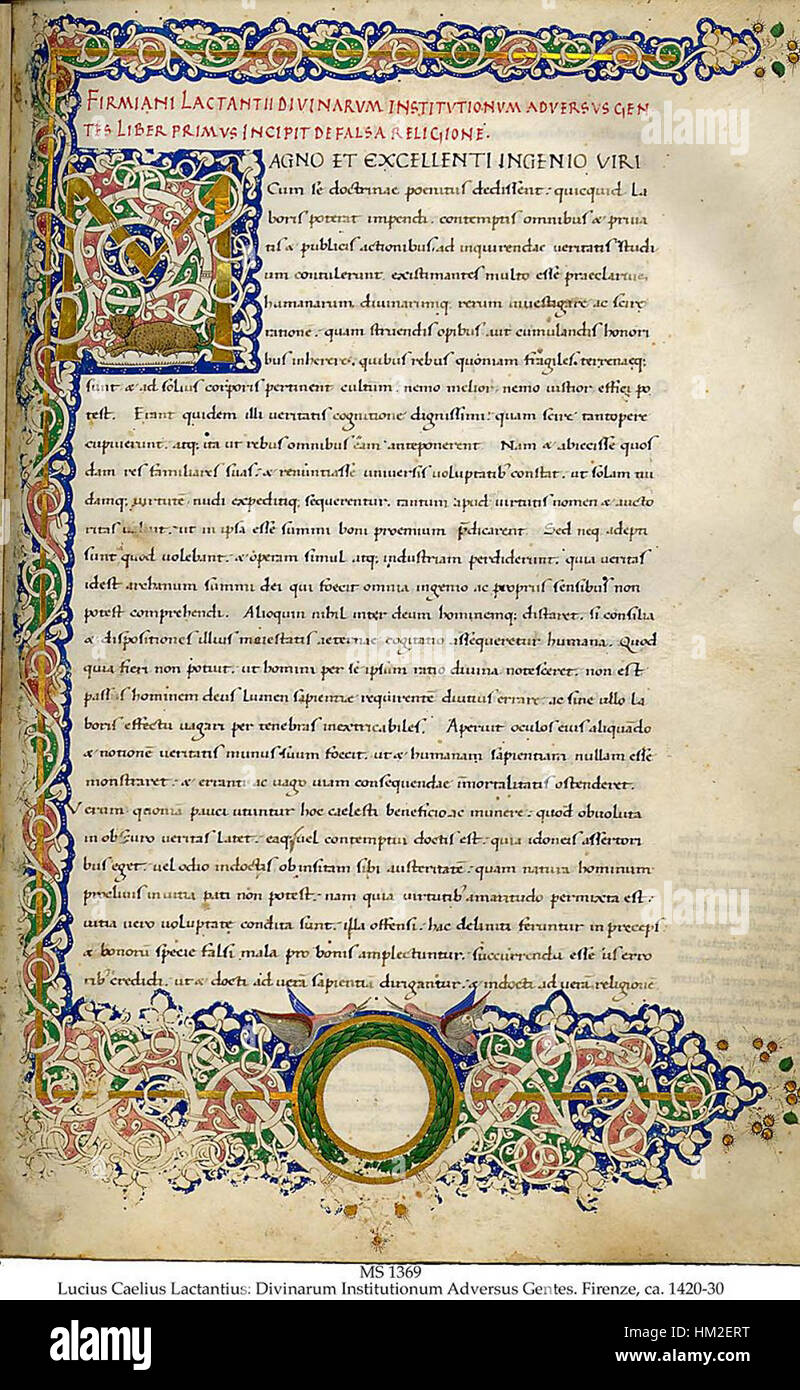 FIRMIANI LACTANTII DIVINARVM INSTITVTIONVM ADVERSVS GEN
TES LIBER PRIMVS INCIPIT DE FALSA RELIGIONE.
MAGNO ET EXCELLENTI INGENIO VIRI
Cum se doctrinae poenitus dedissent: quicquid La
boris poterat impendi. contemptis omnibus & priua
tis & publicis actionibus. ad inquirendae veritatis studi
um contulerunt. existimantes multo esse praeclarius.
humanarum divinarumq; rerum investigare ac scire
ratione. quam struendis opibus aut cumulandis honori
bus inherere. quibus rebus quoniam fragiles terrenaeq;
sunt & ad solius corporis pertinent cultum. nemo melior nemo iustior effici po
test. Erant quidem illi veritatis cognitione dignissimi: quam scire tantopere
cupiverunt. atq; ita ut rebus omnibus eam anteponerent. Nam & abiecisse quos
dam res familiares suas: & renuntiasse universis voluptatib; constat. ut solam nu
damq; virtutē nudi expeditiq; sequerentur. tantum apud virtutis nomen & aucto
ritas valuit. ut in ipsa esse summi boni proemium p̄dicarent. Sed neq. adepti
sunt quod volebant. & operam simul atq; industriam perdiderunt. quia veritas
idest archanum summi dei qui foecit omnia ingenio ac propriis sensibus non
potest comprehendi. Alioquin nihil inter deum hominemq; distaret. si consilia
& dispositiones illius maiestatis aeternae cogitatio assequeretur humana. Quod
quia fieri non potuit. ut homini per se ipsum ratio divina notesceret. non est
passus hominem deus Lumen sapientiae requirentē diutius errare. ac sine ullo La
boris effectu vagari per tenebras inextricabiles. Aperuit oculos eius aliquādo
& notionē veritatis munus suum foecit. ut & humanam sapientiam nullam esse
monstraret. & erranti ac vago viam consequendae īmortalitatis ostenderet.
Verum quoniā pauci utuntur hoc caelesti beneficio ac munere. quod obvoluta
in obscuro veritas Latet. eaq; vel contemptui doctis est. quia idoneis assertori
bus eget. vel odio indoctis ob insitam sibi austeritatē. quam natura hominum
proclivis in vitia pati non potest. nam quia virtutib; amaritudo permixta est.
vitia vero voluptate condita sunt. illa offensi. hac deliniti feruntur in preceps
& bonorū specie falsi mala pro bonis amplectuntur. succurrendū esse iis erro
rib; credidi. ut & docti ad verā sapientiā dirigantur. & indocti ad verā religionē
MS 1369
Lucius Caelius Lactantius: Divinarum Institutionum Adversus Gentes. Firenze, ca. 1420-30
alamy
alamy
Image ID: HM2ERT
www.alamy.com